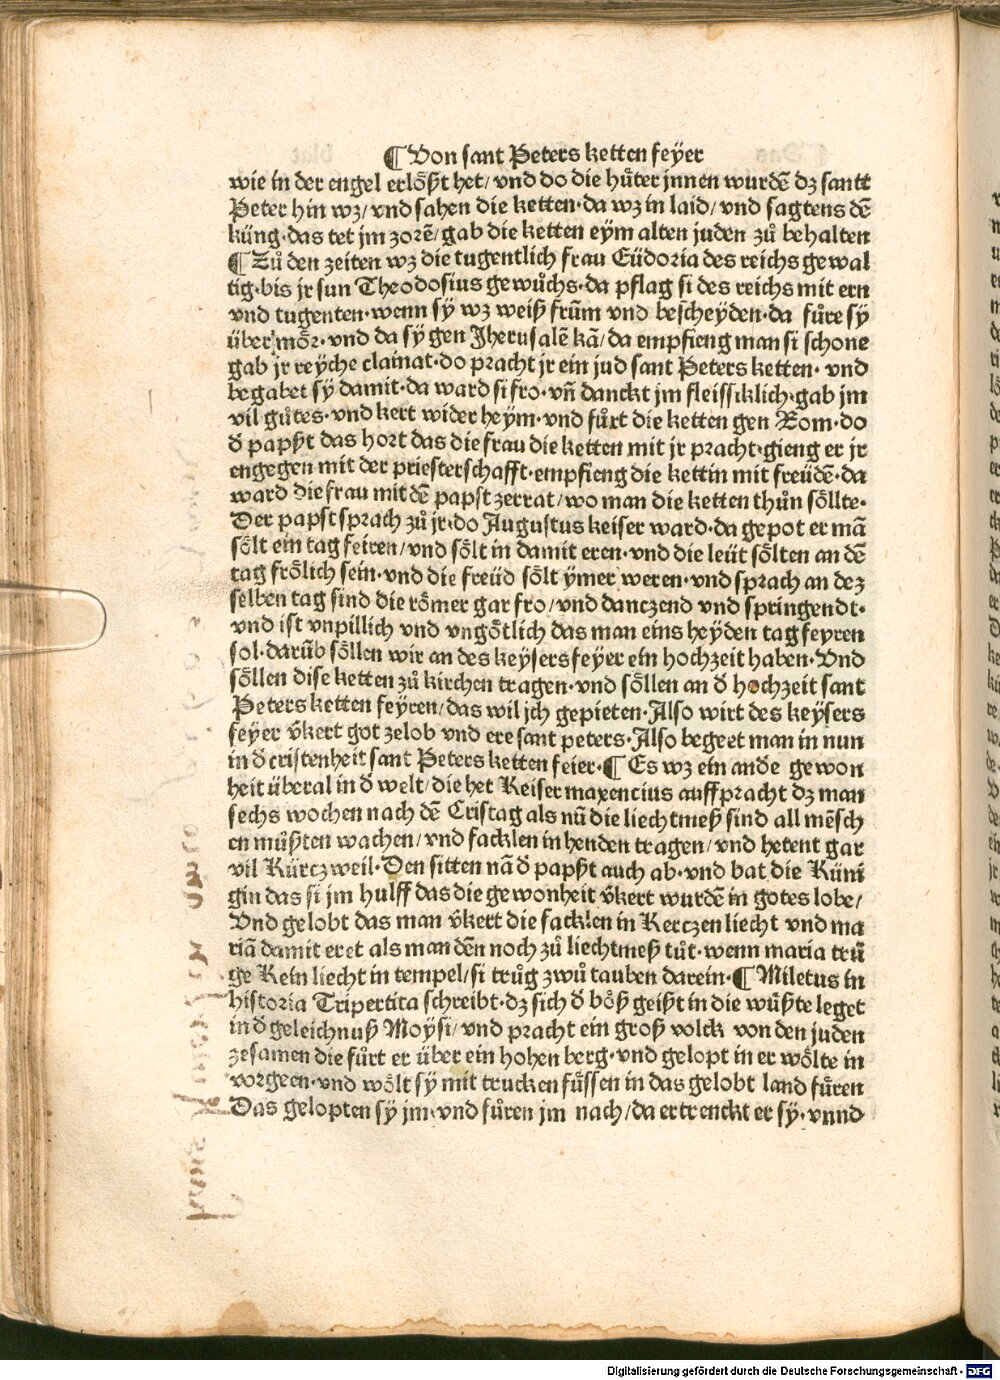 ¶ Von sant Peters ketten feÿer
wie in der engel erlößt het/ vnd do die hüter jnnen wurdē dz santt
Peter hin wz/ vnd sahen die ketten·da wz in laid/ vnd sagtens dē
küng·das tet jm zorē/ gab die ketten eÿm alten juden zů behalten
¶ Zů den zeiten wz die tugentlich frau Eüdoria des reichs gewal
tig·bis jr sun Theodosius gewůchs·da pflag si des reichs mit ern
vnd tugenten·wenn sÿ wz weiß frūm vnd bescheÿden·da fůre sÿ
über mör·vnd da sÿ gen Jherusalē kā/ da empfieng man si schone
gab jr reÿche clainat·do pracht jr ein jud sant Peters ketten· vnd
begabet sÿ damit·da ward si fro·vñ danckt jm fleissiklich·gab jm
vil gůtes·vnd kert wider heÿm·vnd fůrt die ketten gen Rom·do
d̄ papßt das hort das die frau die ketten mit jr pracht·gieng er jr
engegen mit der priesterschafft·empfieng die kettin mit freüdē·da
ward die frau mit dē papst zerrat/ wo man die ketten thůn söllte·
Der papst sprach zů jr·do Augustus keiser ward·da gepot er mā
sölt ein tag feiren/ vnd sölt in damit eren·vnd die leüt sölten an dē
tag frölich sein·vnd die freüd sölt ÿmer weren·vnd sprach an dez
selben tag sind die römer gar fro/ vnd danczend vnd springendt·
vnd ist vnpillich vnd vngötlich das man eins heÿden tag feyren
sol·darūb söllen wir an des keÿsers feÿer ein hochzeit haben·Vnd
söllen dise ketten zů kirchen tragen·vnd söllen an d̄ hochzeit sant
Peters ketten feÿren/ das wil jch gepieten·Also wirt des keÿsers
feÿer v̄kert got zelob vnd ere sant peters·Also begeet man in nun
in d̄ cristenheit sant Peters ketten feier·¶ Es wz ein andē gewon
heit überal in d̄ welt/ die het Keiser maxencius auffpracht dz man
sechs wochen nach dē Cristag als nū die liechtmeß sind all mēsch
en müßten wachen/ vnd facklen in henden tragen/ vnd hetent gar
vil Kürczweil·Den sitten nā d̄ papßt auch ab·vnd bat die Küni
gin das si jm hulff das die gewonheit v̄kert wurdē in gotes lobe/
Vnd gelobt das man v̄kert die facklen in Kerczen liecht vnd ma
riā damit eret als man dēn noch zů liechtmeß tůt·wenn maria trů
ge Kein liecht in tempel/ si trůg zwů tauben darein·¶ Miletus in
historia Tripertita schreibt·dz sich d̄ böß geißt in die wüßte leget
in d̄ geleichnuß Moÿsi/ vnd pracht ein groß volck von den juden
zesamen die fůrt er über ein hohen berg·vnd gelopt in er wölte in
vorgeen·vnd wölt sÿ mit trucken füssen in das gelobt land füren
Das gelopten sÿ jm·vnd fůren jm nach/ da ertrenckt er sÿ·vnnd
Digitalisierung gefördert durch die Deutsche Forschungsgemeinschaft · DFG